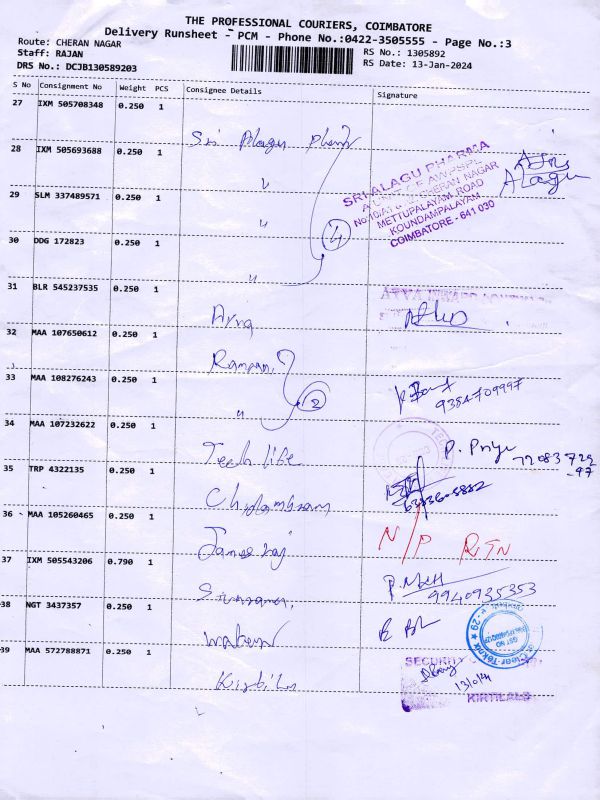 THE PROFESSIONAL COURIERS, COIMBATORE
Delivery Runsheet - PCM - Phone No.:0422-3505555 - Page No.:3
Route: CHERAN NAGAR
RS No.: 1305892
Staff: RAJAN
RS Date: 13-Jan-2024
DRS No.: DCJB130589203
S No Consignment No Weight PCS Consignee Details Signature
27 IXM 505708348 0.250 1
Sri Alagu Pharma
28 IXM 505693688 0.250 1
"
SRI ALAGU PHARMA
METTUPALAYAM ROAD
KOUNDAMPALAYAM
COIMBATORE - 641 030
Alagu
29 SLM 337489571 0.250 1
"
4
30 DDG 172823 0.250 1
"
31 BLR 545237535 0.250 1
Arya
32 MAA 107650612 0.250 1
Ramani
33 MAA 108276243 0.250 1
"
2
9384709997
34 MAA 107232622 0.250 1
Tech life
P. Priya
7208372297
35 TRP 4322135 0.250 1
Chidambram
36 MAA 105260465 0.250 1
James raj
N/P RTN
37 IXM 505543206 0.790 1
9940935353
38 NGT 3437357 0.250 1
39 MAA 572788871 0.250 1
SECURITY
KIRTILALS